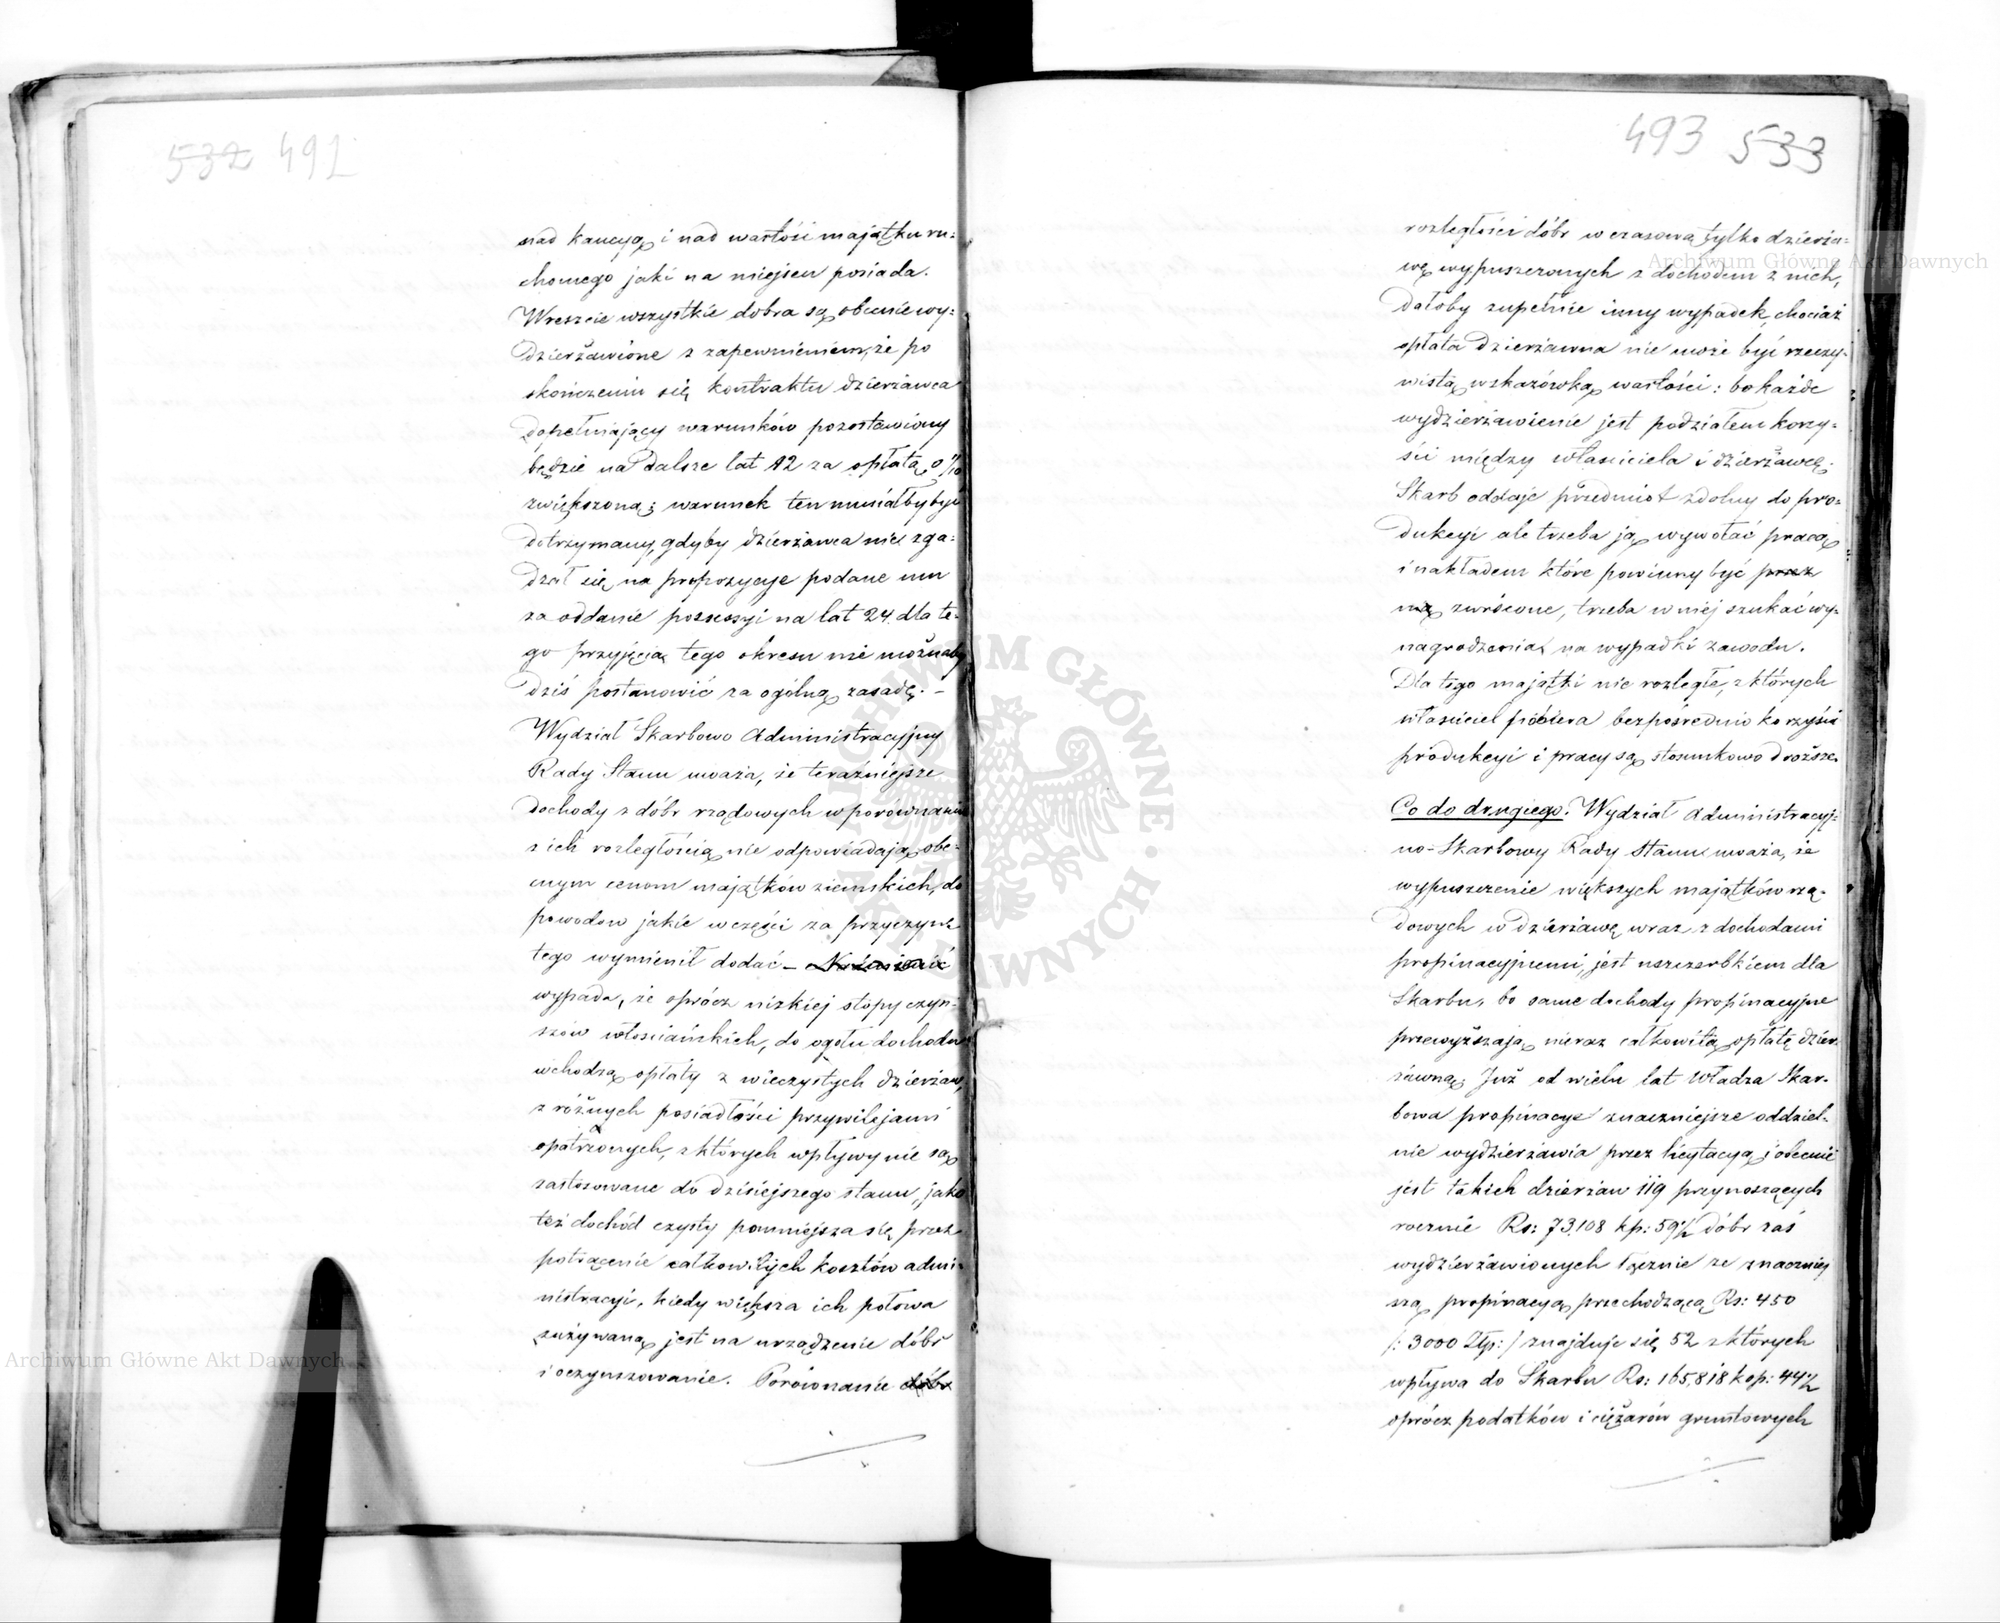 532 492
nad kaucyą i nad wartość majątku ru=
chomego jaki na miejscu posiada.
Wreszcie wszystkie dobra są obecnie wy=
dzierżawione z zapewnieniem, że po
skończeniu się kontraktu dzierżawca
dopełniający warunków pozostawiony
będzie na dalsze lat 12 za opłatą o 1/10
zwiększoną; warunek ten musiałby być
dotrzymany, gdyby dzierżawca nie zga=
dzał się na propozycye podane mu
za oddanie possessyi na lat 24. dla te=
go przyjęcia tego okresu nie możnaby
dziś postanowić za ogólną zasadę. –
Wydział Skarbowo Administracyjny
Rady Stanu uważa, że teraźniejsze
dochody z dóbr rządowych w porównaniu
z ich rozległością nie odpowiadają obe=
cnym cenom majątków ziemskich, do
powodow jakie w części za przyczynę
tego wymienił dodać –
wypada, że oprócz nizkiej stopy czyn=
szów włościańskich, do ogółu dochodu
wchodzą opłaty z wieczystych dzierżaw,
z różnych posiadłości przywilejami
opatrzonych, z których wpływy nie są
zastosowane do dzisiejszego stanu, jako
też dochód czysty pomniejsza się przez
potrącenie całkowitych kosztów admi=
nistracyi, kiedy większa ich połowa
zużywaną jest na urządzenie dóbr
i oczynszowanie. Porównanie dóbr
493 533
rozległości dóbr w czasową tylko dzierża=
wę wypuszczonych z dochodem z nich,
dałoby zupełnie inny wypadek, chociaż
opłata dzierżawna nie może być rzeczy=
wistą wskazówką wartości: bo każde
wydzierżawienie jest podziałem korzy=
ści między właściciela i dzierżawcę.
Skarb oddaje przedmiot zdolny do pro=
dukcyi ale trzeba ją wywołać pracą
i nakładem które powinny być przez
nią zwrócone, trzeba w niej szukać wy=
nagrodzenia na wypadki zawodu.
Dla tego majątki nie rozległe, z których
właściciel pobiera bezpośrednio korzyści
produkcyi i pracy są stosunkowo droższe.
Co do drugiego. Wydział Administracyj=
no-Skarbowy Rady Stanu uważa, że
wypuszczenie większych majątków rzą=
dowych w dzierżawę wraz z dochodami
propinacyjnemi, jest uszczerbkiem dla
Skarbu, bo same dochody propinacyjne
przewyższają nieraz całkowitą opłatę dzier=
żawną. Już od wielu lat Władza Skar=
bowa propinacye znaczniejsze oddziel=
nie wydzierżawia przez licytacyą i obecnie
jest takich dzierżaw 119 przynoszących
rocznie Rs: 73,108 kp: 59½ dóbr zaś
wydzierżawionych łącznie ze znaczniej
szą propinacyą przechodzącą Rs: 450
/: 3000 Złp: / znajduje się 52 z których
wpływa do Skarbu Rs: 165,818 kop: 44½
oprócz podatków i ciężarów gruntowych
Archiwum Główne Akt Dawnych
Archiwum Główne Akt Dawnych
ARCHIWUM GŁÓWNE AKT DAWNYCH